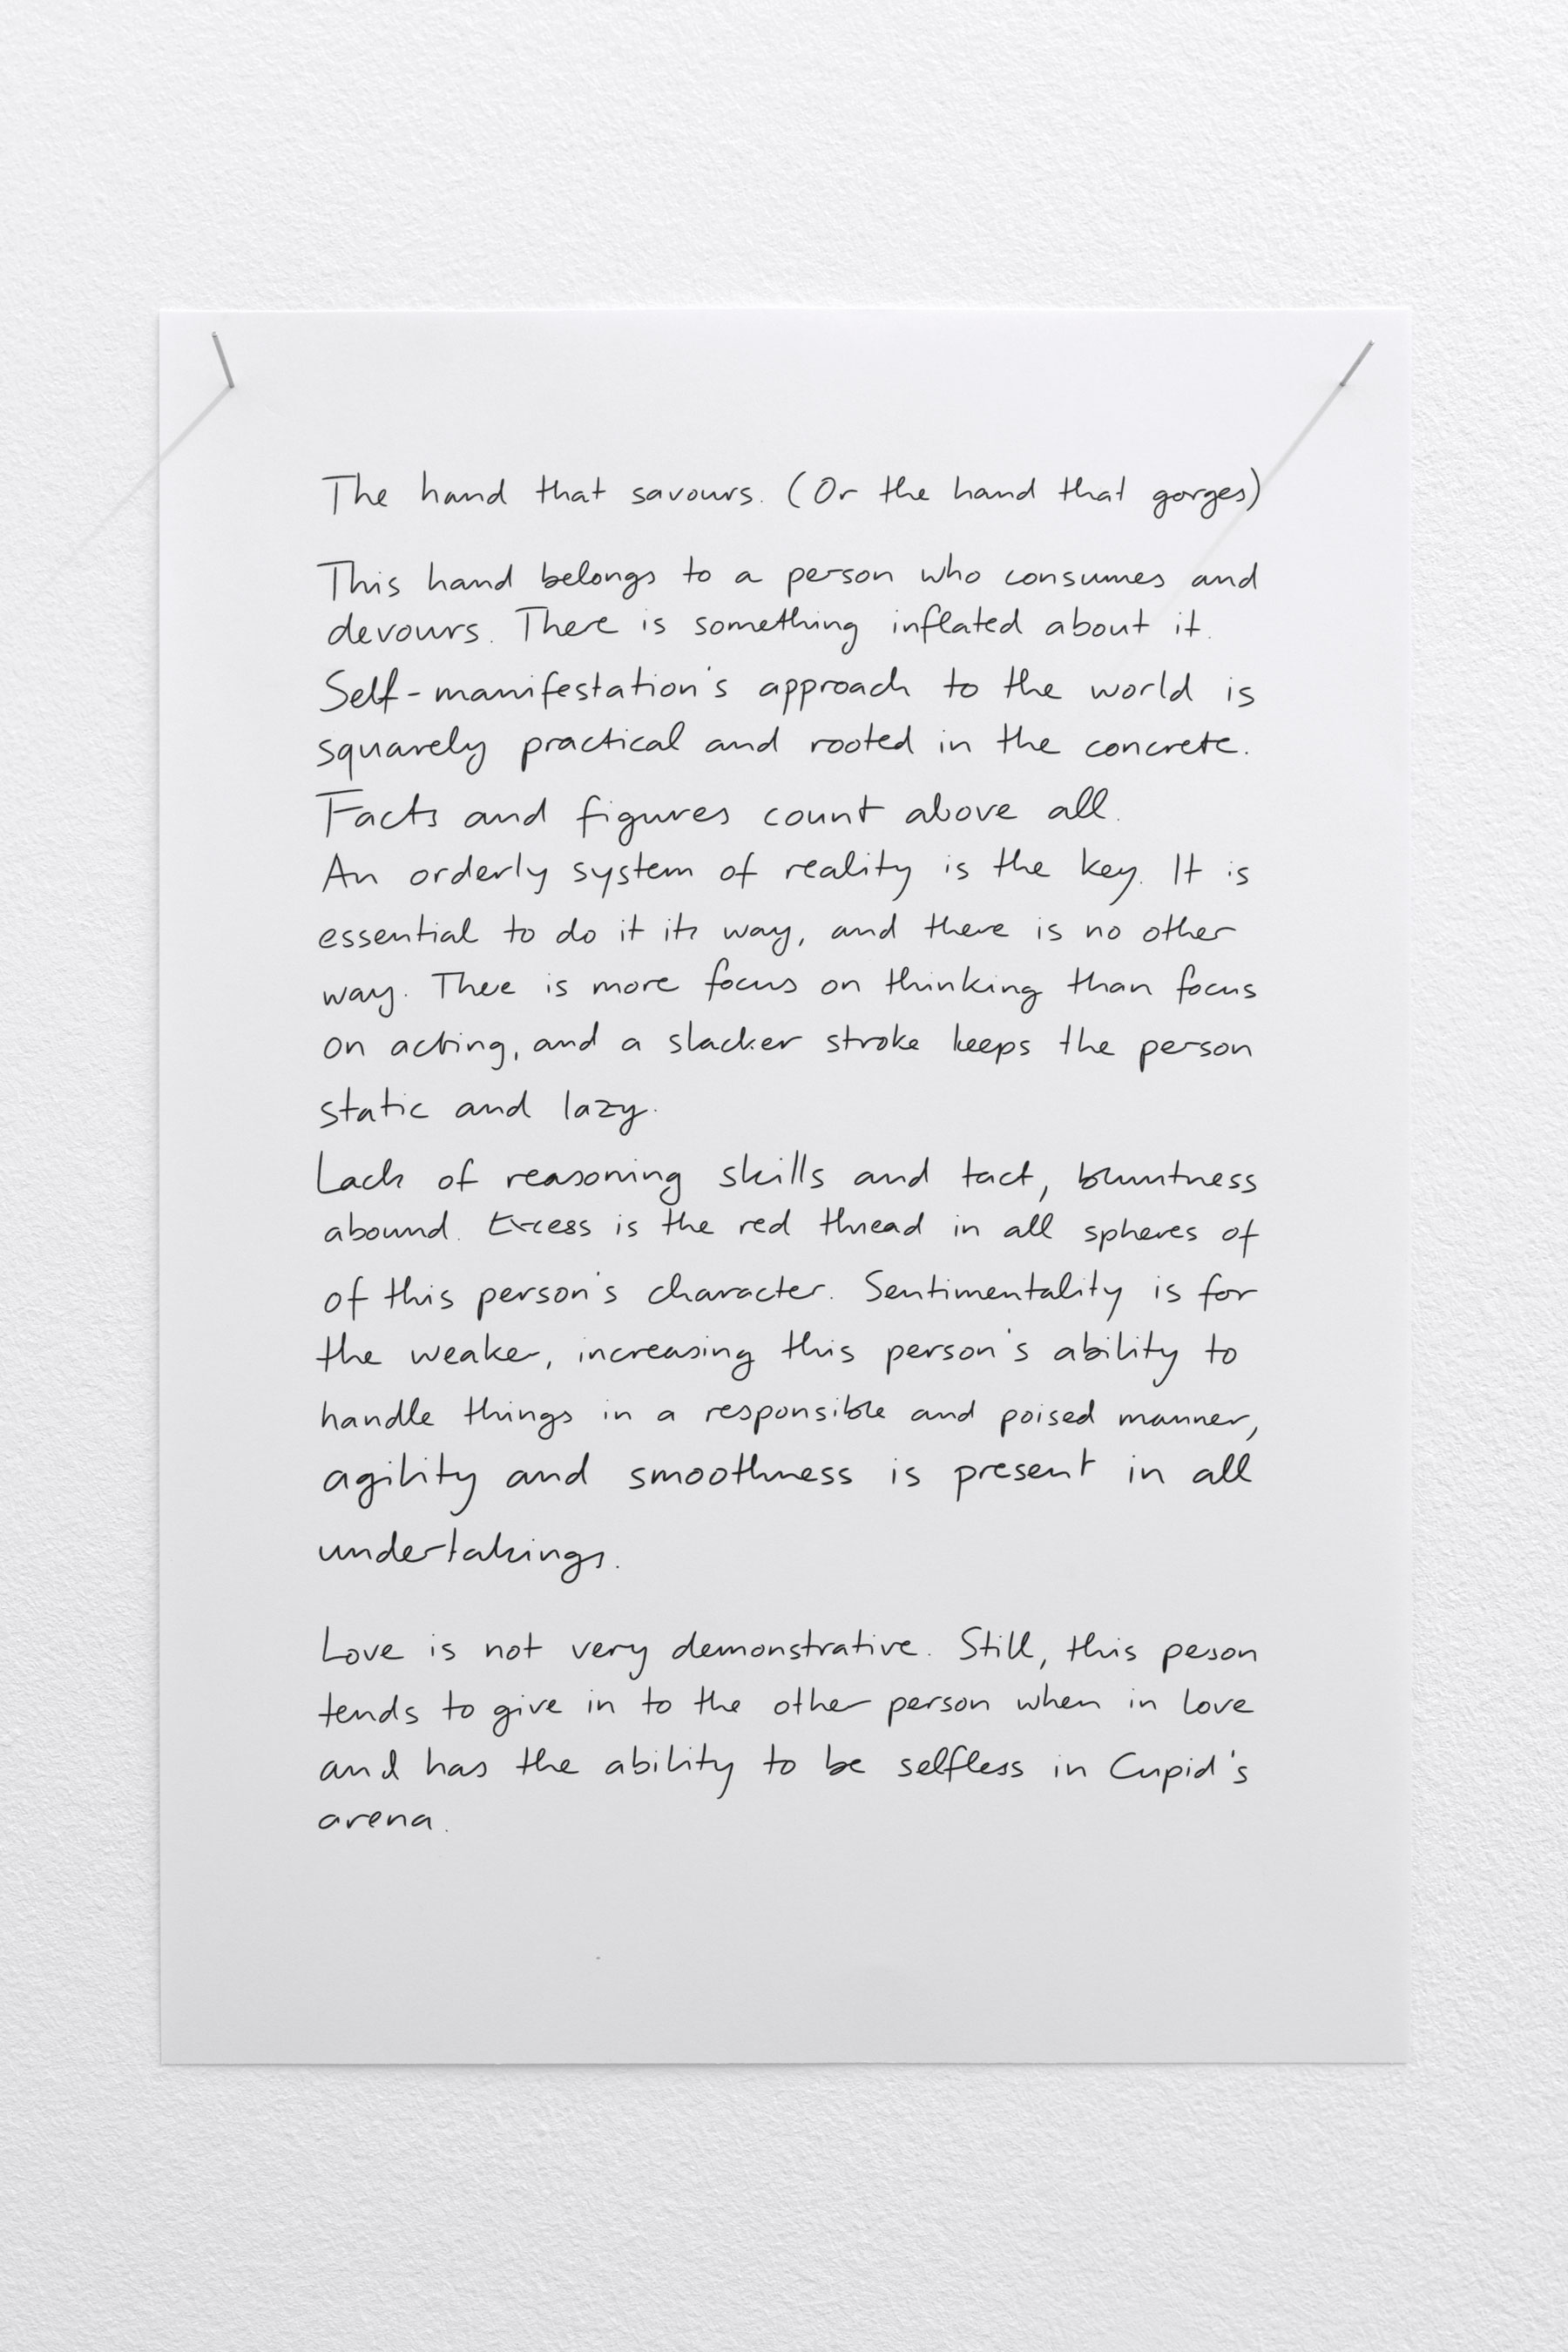 The hand that savours. (Or the hand that gorges)
This hand belongs to a person who consumes and
devours. There is something inflated about it.
Self-manifestation's approach to the world is
squarely practical and rooted in the concrete.
Facts and figures count above all.
An orderly system of reality is the key. It is
essential to do it its way, and there is no other
way. There is more focus on thinking than focus
on acting, and a slacker stroke keeps the person
static and lazy.
Lack of reasoning skills and tact, bluntness
abound. Excess is the red thread in all spheres of
of this person's character. Sentimentality is for
the weaker, increasing this person's ability to
handle things in a responsible and poised manner,
agility and smoothness is present in all
undertakings.
Love is not very demonstrative. Still, this person
tends to give in to the other person when in love
and has the ability to be selfless in Cupid's
arena.